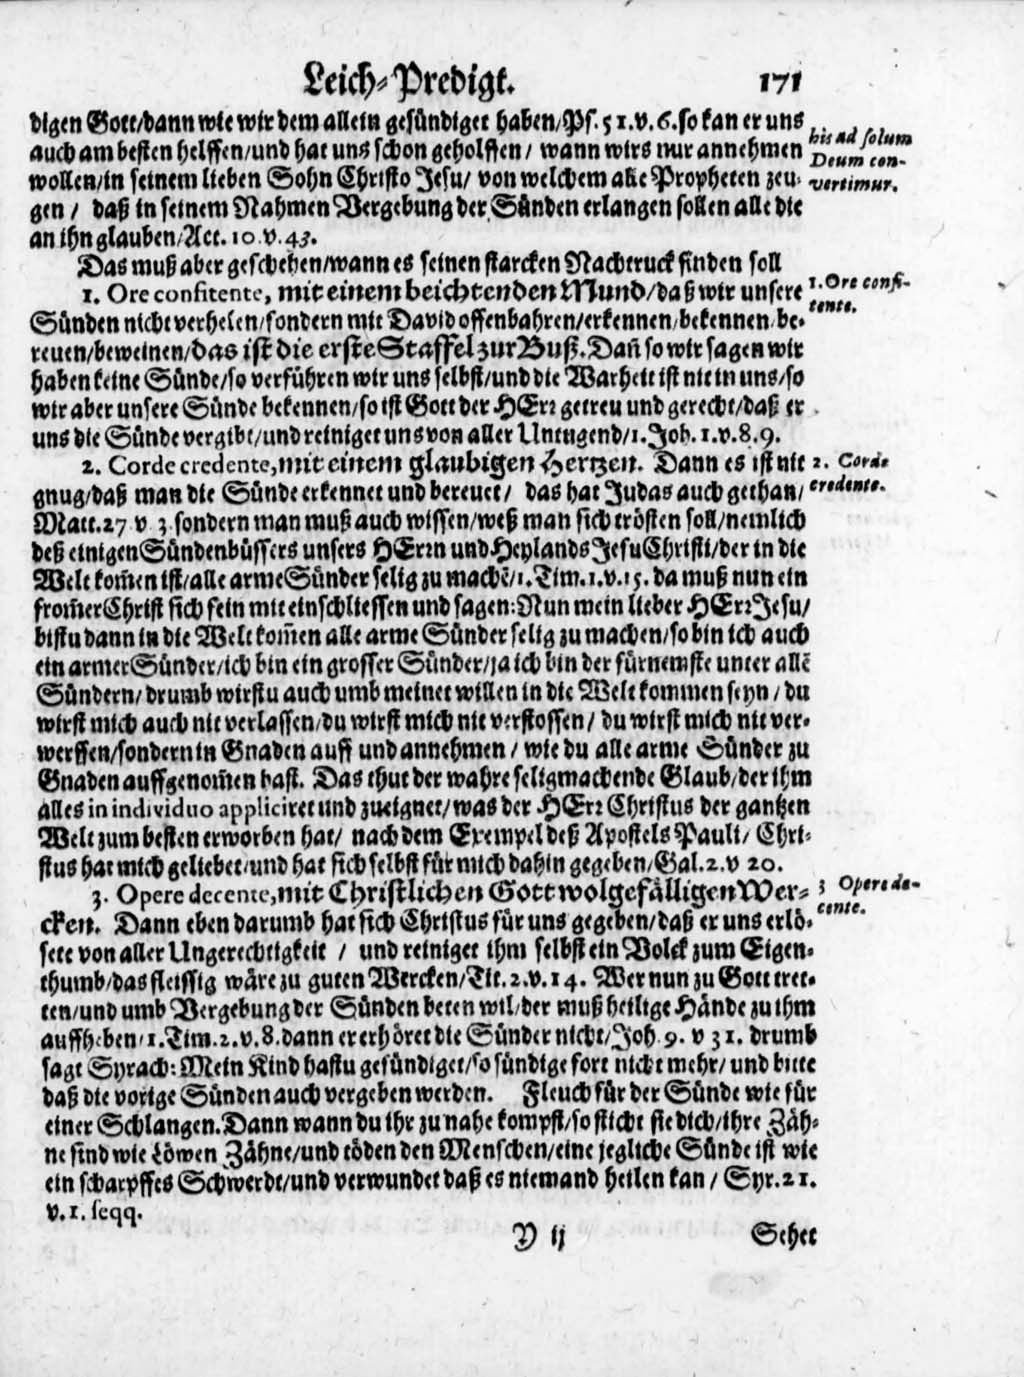 Leich-Predigt. 171
digen Gott/dann wie wir dem allein gesündiget haben/Ps. 51.v.6. so kan er uns
auch am besten helffen/und hat uns schon geholffen/ wann wirs nur annehmen
wollen/in seinem lieben Sohn Christo Jesu/ von welchem alle Propheten zeu-
gen / daß in seinem Nahmen Vergebung der Sünden erlangen sollen alle die
an ihn glauben/Act. 10.v.43.
his ad solum
Deum con-
vertimur.
Das muß aber geschehen/wann es seinen starcken Nachtruck finden soll
1. Ore confitente, mit einem beichtenden Mund/daß wir unsere
Sünden nicht verhelen/sondern mit David offenbahren/erkennen/bekennen/be-
reuen/beweinen/das ist die erste Staffel zur Buß. Dañ so wir sagen wir
haben keine Sünde/so verführen wir uns selbst/und die Warheit ist nit in uns/so
wir aber unsere Sünde bekennen/so ist Gott der HErr getreu und gerecht/daß er
uns die Sünde vergibt/und reiniget uns von aller Untugend/1. Joh. 1.v.8.9.
1. Ore confi-
tente.
2. Corde credente, mit einem glaubigen Hertzen. Dann es ist nit
gnug/daß man die Sünde erkennet und bereuet/ das hat Judas auch gethan/
Matt. 27 v. 3. sondern man muß auch wissen/weß man sich trösten soll/nemlich
deß einigen Sündenbüssers unsers HErrn und Heylands Jesu Christi/der in die
Welt kom̃en ist/alle arme Sünder selig zu machẽ/1. Tim. 1.v.15. da muß nun ein
from̃er Christ sich fein mit einschliessen und sagen: Nun mein lieber HErr Jesu/
bistu dann in die Welt kom̃en alle arme Sünder selig zu machen/so bin ich auch
ein armer Sünder/ich bin ein grosser Sünder/ja ich bin der fürnemste unter allẽ
Sündern/drumb wirstu auch umb meinet willen in die Welt kommen seyn / du
wirst mich auch nit verlassen/du wirst mich nit verstossen/ du wirst mich nit ver-
werffen/sondern in Gnaden auff und annehmen / wie du alle arme Sünder zu
Gnaden auffgenom̃en hast. Das thut der wahre seligmachende Glaub/der ihm
alles in individuo appliciret und zueignet/was der HErr Christus der gantzen
Welt zum besten erworben hat/ nach dem Exempel deß Apostels Pauli/ Chri-
stus hat mich geliebet/und hat sich selbst für mich dahin gegeben/Gal. 2.v 20.
2. Corde
credente.
3. Opere decente, mit Christlichen Gott wolgefälligen Wer-
cken. Dann eben darumb hat sich Christus für uns gegeben/daß er uns erlö-
sete von aller Ungerechtigkeit / und reiniget ihm selbst ein Volck zum Eigen-
thumb/das fleissig wäre zu guten Wercken/Tit. 2.v.14. Wer nun zu Gott tret-
ten/und umb Vergebung der Sünden beten wil/der muß heilige Hände zu ihm
auffheben/1. Tim. 2.v.8. dann er erhöret die Sünder nicht/Joh. 9. v 31. drumb
sagt Syrach: Mein Kind hastu gesündiget/so sündige fort nicht mehr/ und bitte
daß die vorige Sünden auch vergeben werden. Fleuch für der Sünde wie für
einer Schlangen. Dann wann du ihr zu nahe kompst/so sticht sie dich/ihre Zäh-
ne sind wie Löwen Zähne/und töden den Menschen/eine jegliche Sünde ist wie
ein scharpffes Schwerdt/und verwundet daß es niemand heilen kan / Syr. 21.
v. 1. seqq.
3 Opere de-
cente.
Y ij Sehet